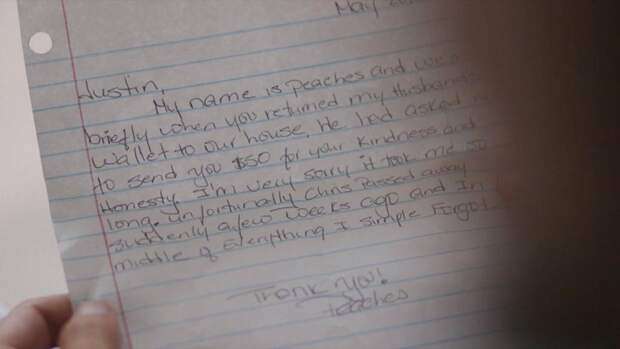 May
Justin,
My name is Peaches and we
briefly when you returned my Husband's
wallet to our house. He had asked
to send you $50 for your kindness and
Honesty. I'm very sorry it took me so
long. unfortunally Chris passed away
suddenly afew weeks ago and In
middle of Everything I simple Forgot
Thank you!
Peaches